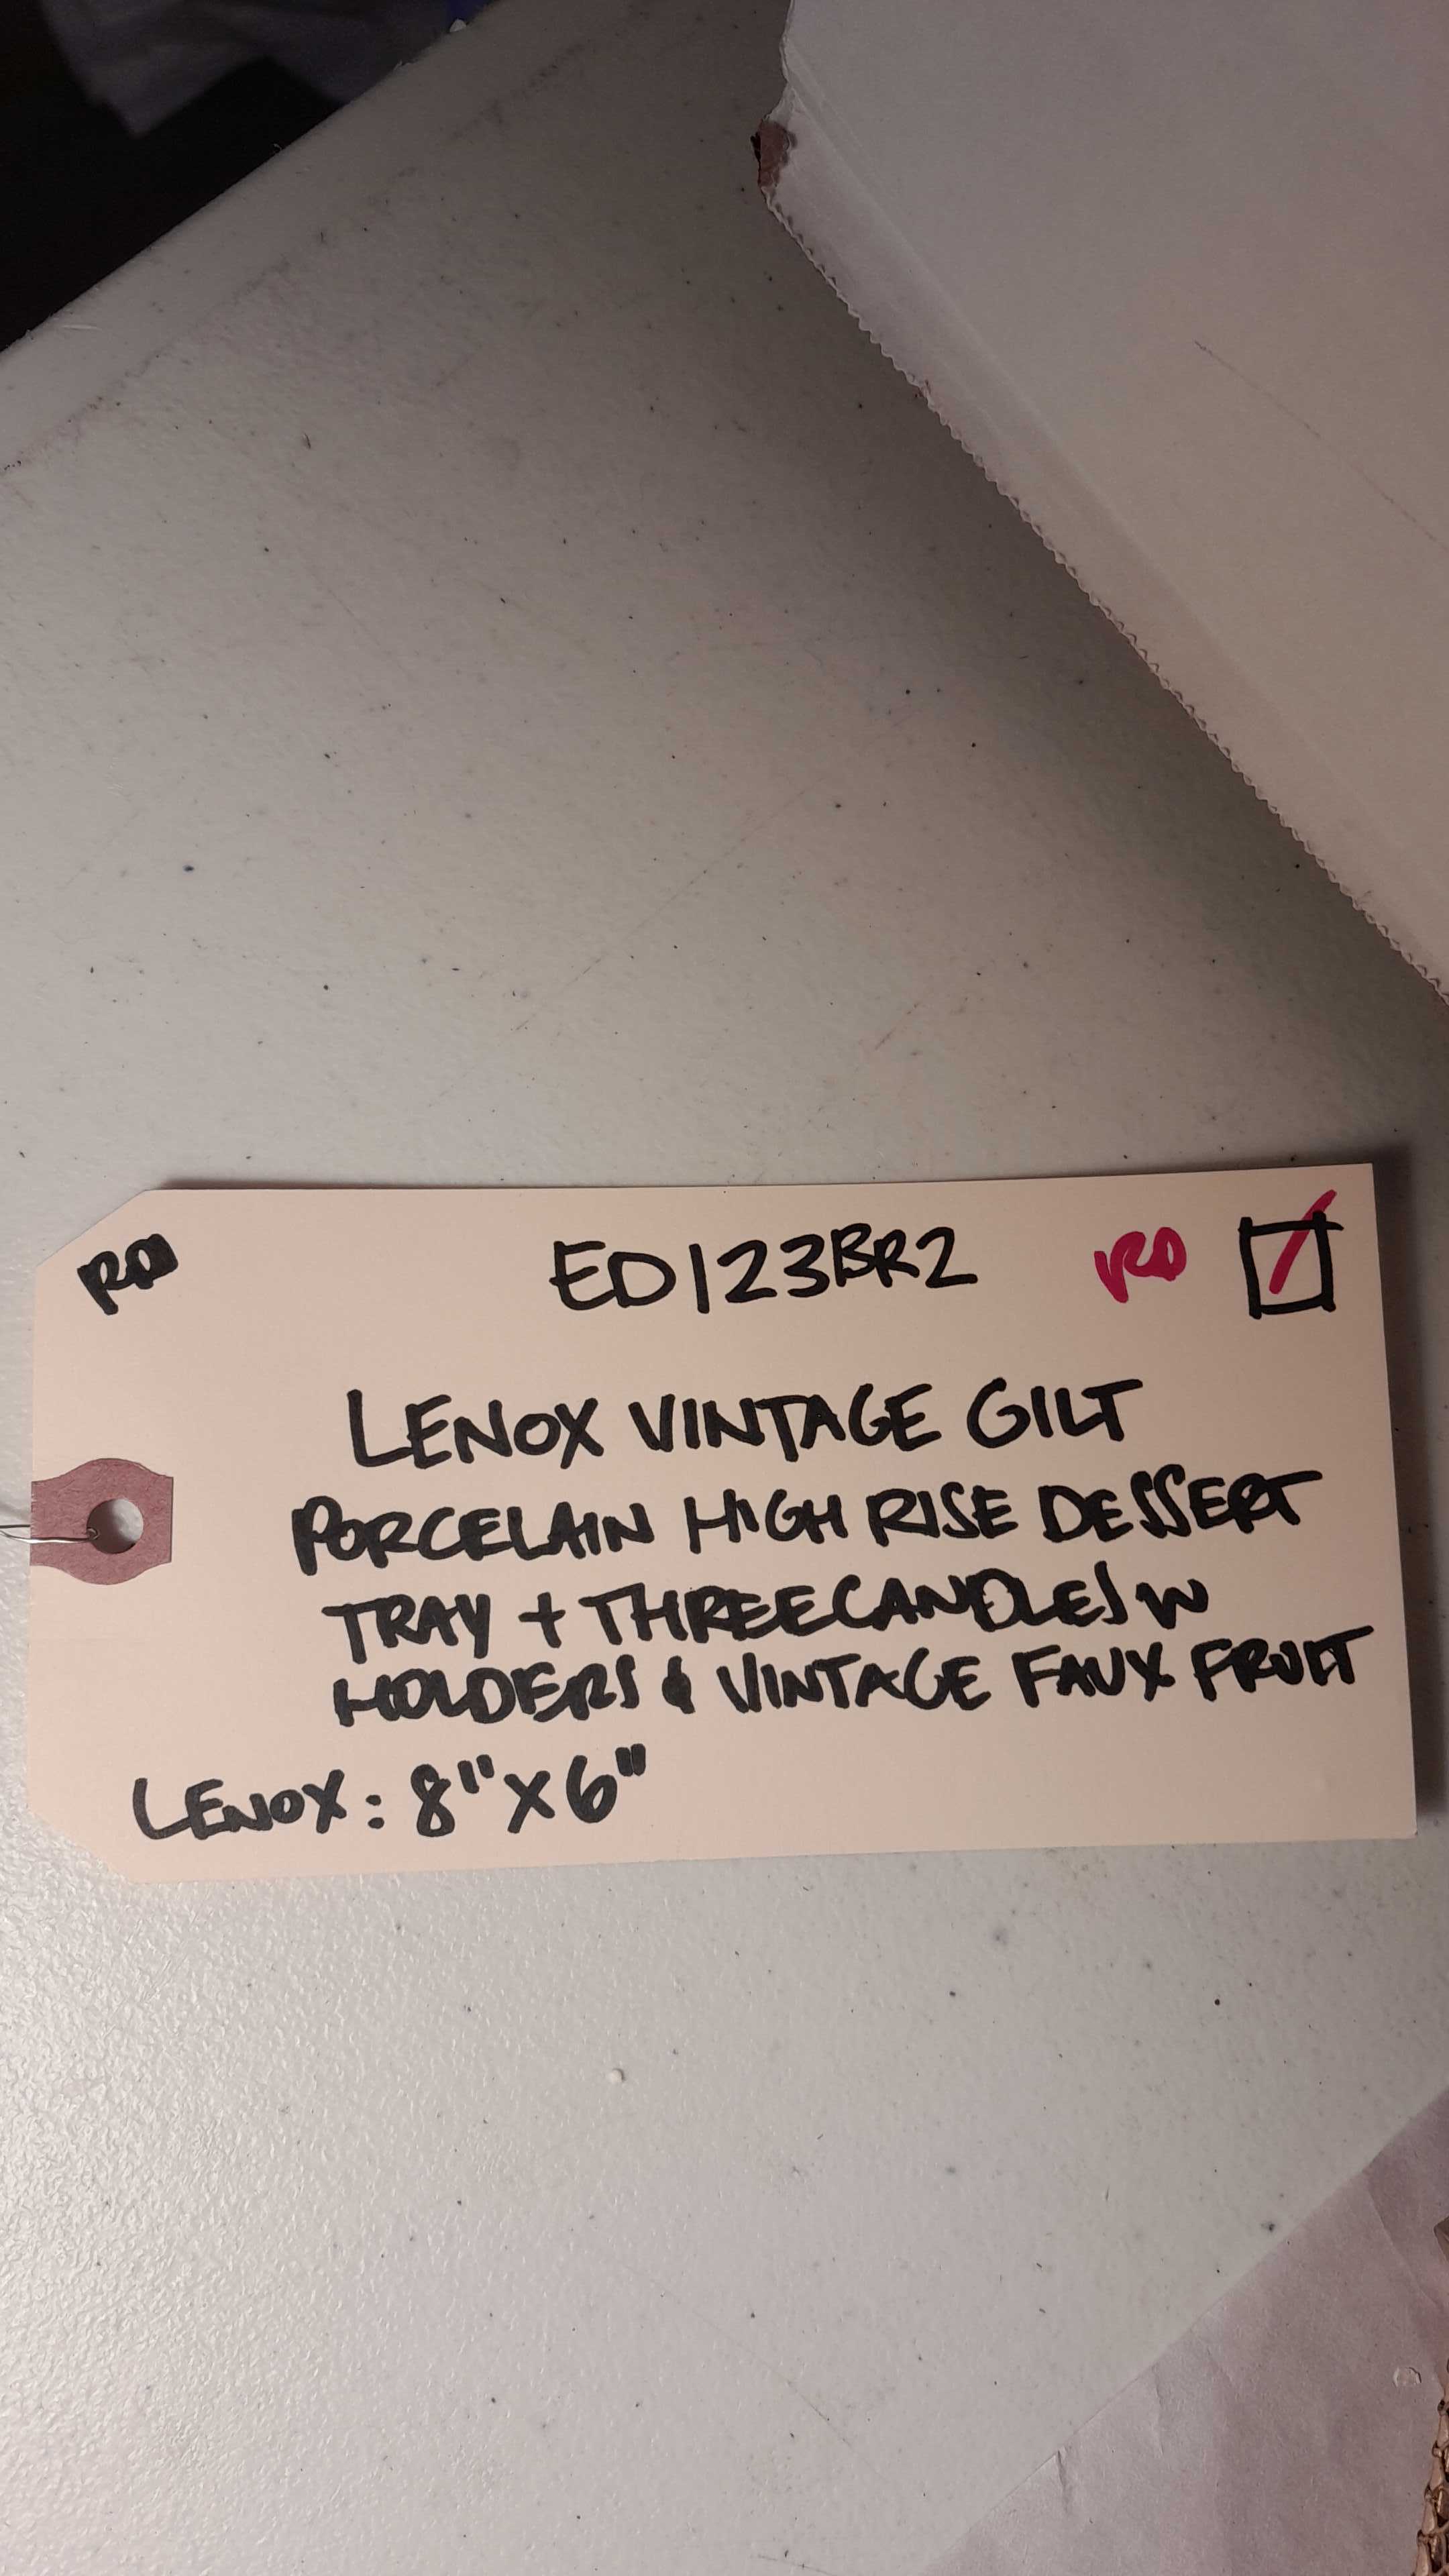 RD ED123BR2 RD
LENOX VINTAGE GILT
PORCELAIN HIGH RISE DESSERT
TRAY + THREE CANDLES W
HOLDERS & VINTAGE FAUX FRUIT
LENOX: 8" X 6"